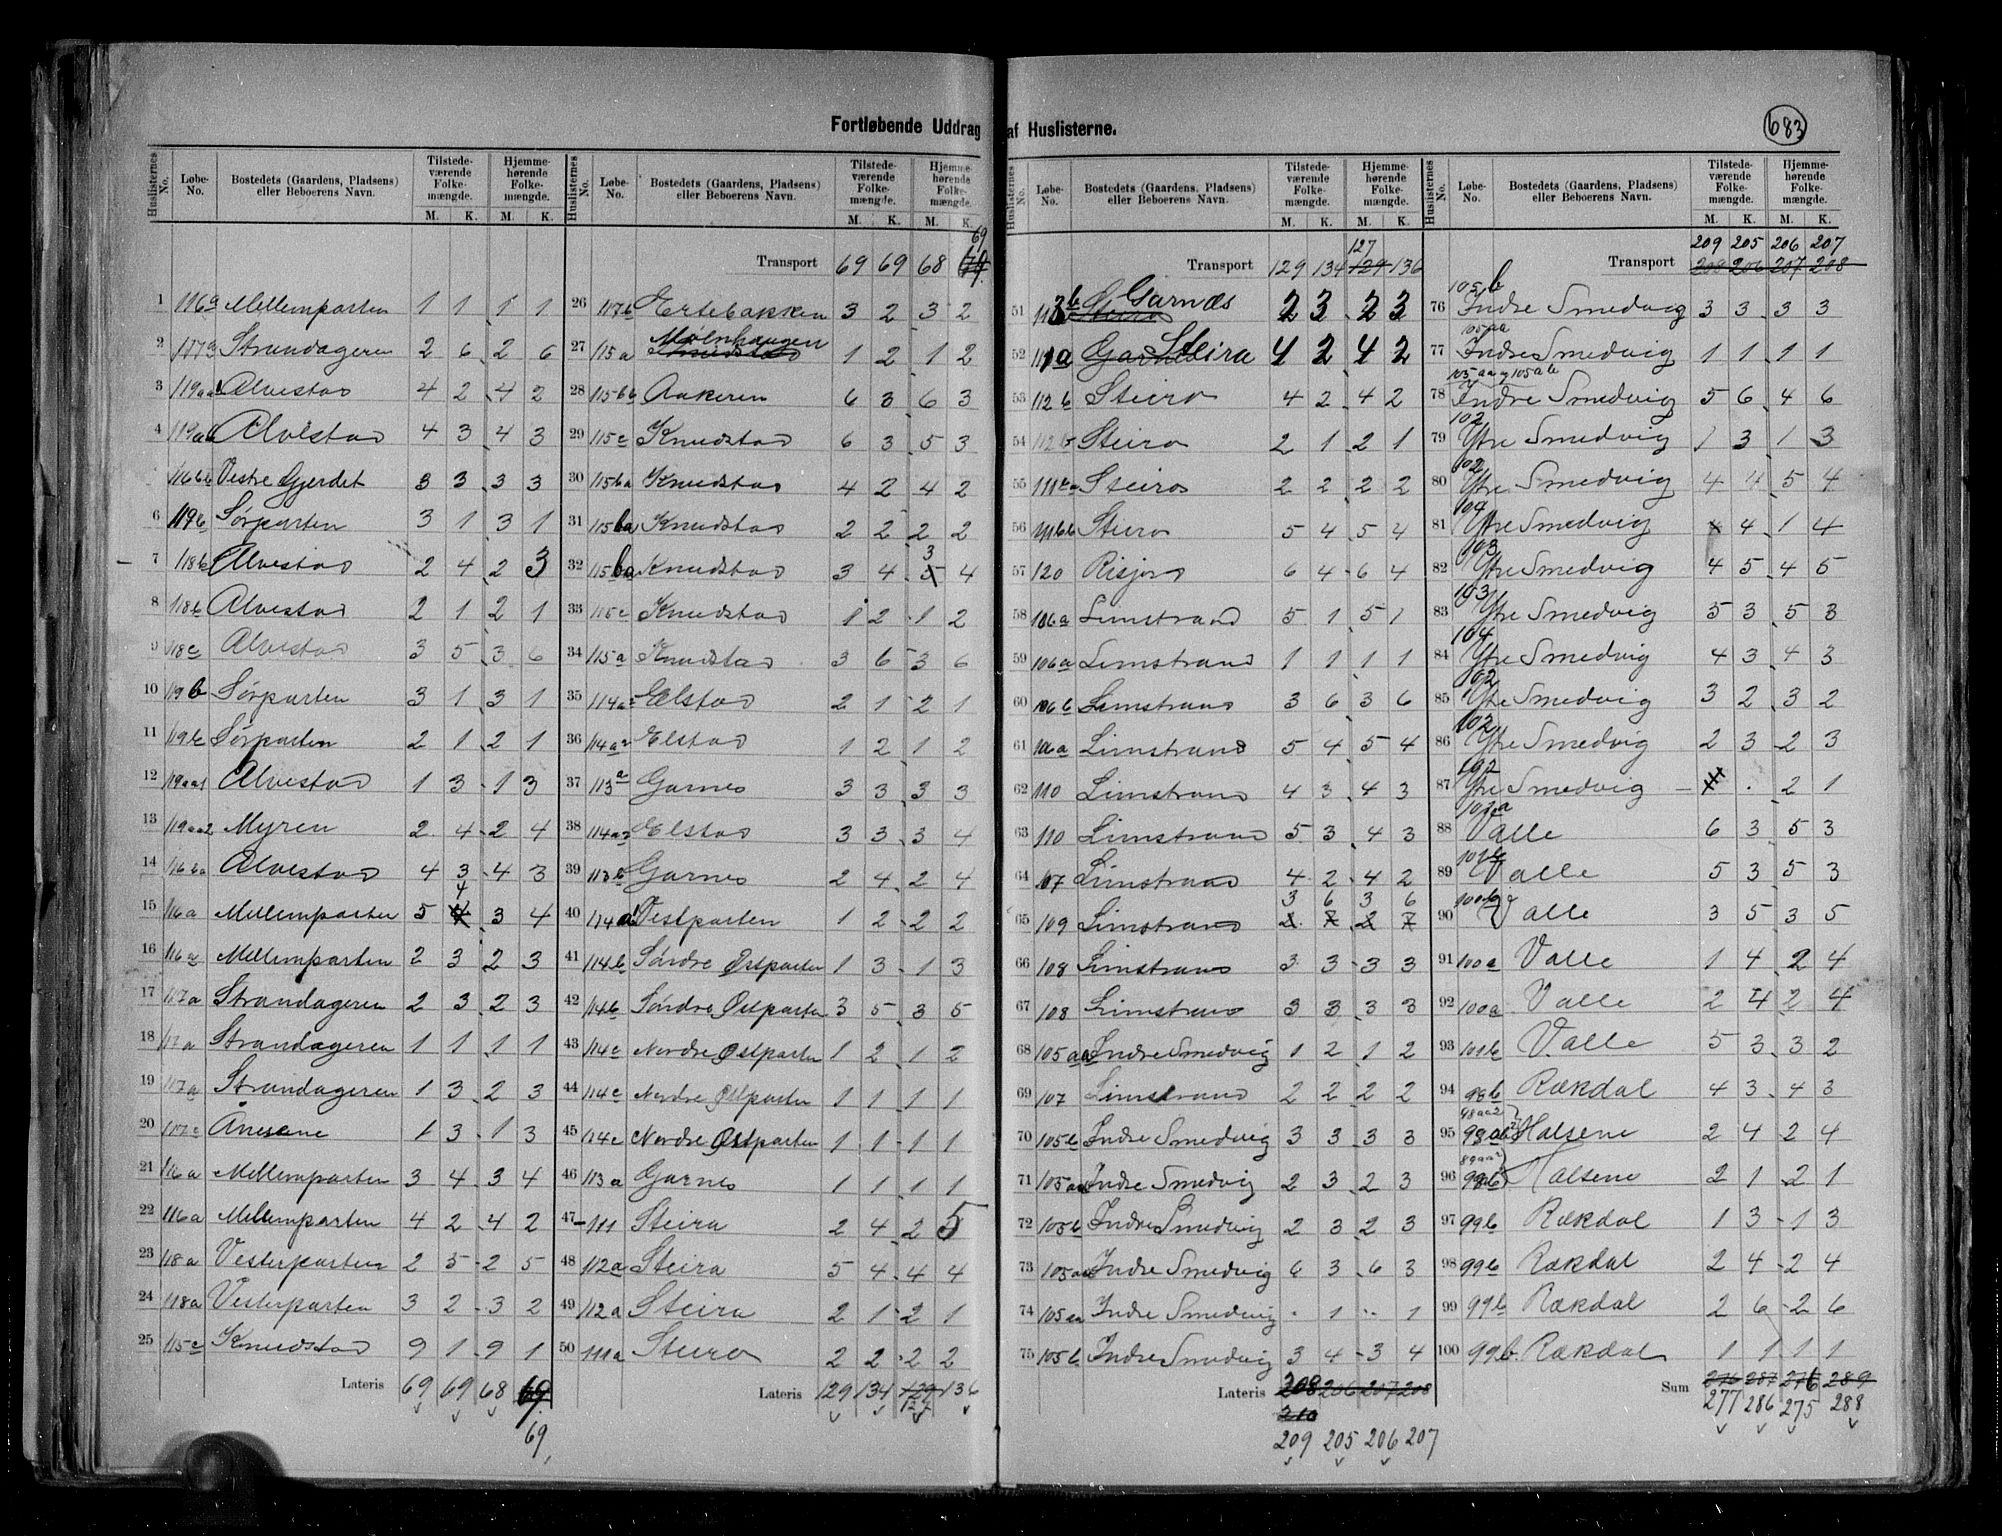 Fortløbende Uddrag af Huslisterne.
683
Huslisternes No. Løbe-No. Bostedets (Gaardens, Pladsens) eller Beboerens Navn. Tilstedeværende Folkemængde. M. K. Hjemmehørende Folkemængde. M. K.
1 116a Mellemparten 1 1 1 1
2 117a Strandageren 2 6 2 6
3 Alvestad 4 2 4 2
4 Alvestad 4 3 4 3
Vestre Gjerdet 3 3 3 3
6 119b Sørparten 3 1 3 1
7 118b Alvestad 2 4 2 3
8 118b Alvestad 2 1 2 1
9 118c Alvestad 3 5 3 6
10 119b Sørparten 3 1 3 1
11 119b Sørparten 2 1 2 1
12 119aa1 Alvestad 1 3 1 3
13 119aa2 Myren 2 4 2 4
14 116ba Alvestad 4 3 4 3
15 116a Mellemparten 5 4 3 4
16 116a Mellemparten 2 3 2 3
17 117a Strandageren 2 3 2 3
18 117a Strandageren 1 1 1 1
19 117a Strandageren 1 3 2 3
20 117c Ånesene 1 3 1 3
21 116a Mellemparten 3 4 3 4
22 116a Mellemparten 4 2 4 2
23 118a Vesterparten 2 5 2 5
24 118a Vesterparten 3 2 3 2
25 115c Knudstad 9 1 9 1
Lateris 69 69 68 69
69
Huslisternes No. Løbe-No. Bostedets (Gaardens, Pladsens) eller Beboerens Navn. Tilstedeværende Folkemængde. M. K. Hjemmehørende Folkemængde. M. K.
Transport 69 69 68 69
26 117b Ertebakken 3 2 3 2
27 115a Mølnhaugen 1 2 1 2
28 115bb Aakeren 6 3 6 3
29 115c Knudstad 6 3 5 3
30 115ba Knudstad 4 2 4 2
31 115ba Knudstad 2 2 2 2
32 115ba Knudstad 3 4 3 4
33 115c Knudstad 1 2 1 2
34 115a Knudstad 3 6 3 6
35 Elstad 2 1 2 1
36 114a2 Elstad 1 2 1 2
37 113a Garnes 3 3 3 3
38 114a2 Elstad 3 3 3 4
39 113b Garnes 2 4 2 4
40 Vestparten 1 2 2 2
41 114b Søndre Østparten 1 3 1 3
42 114b Søndre Østparten 3 5 3 5
43 114c Nordre Østparten 1 2 1 2
44 114c Nordre Østparten 1 1 1 1
45 114c Nordre Østparten 1 1 1 1
46 113a Garnes 1 1 1 1
47 111 Steira 2 4 2 5
48 112a Steira 5 4 4 4
49 112a Steira 2 1 2 1
50 111a Steiro 2 2 2 2
Lateris 129 134 129 136
127
Huslisternes No. Løbe-No. Bostedets (Gaardens, Pladsens) eller Beboerens Navn. Tilstedeværende Folkemængde. M. K. Hjemmehørende Folkemængde. M. K.
127
Transport 129 134 129 136
51 113b Garnæs 2 3 2 3
52 Steira 4 2 4 2
53 112b Steiro 4 2 4 2
54 112b Steiro 2 1 2 1
55 Steiro 2 2 2 2
56 Steiro 5 4 5 4
57 120 Risjord 6 4 6 4
58 106a Limstrand 5 1 5 1
59 106a Limstrand 1 1 1 1
60 106b Limstrand 3 6 3 6
61 106a Limstrand 5 4 5 4
62 110 Limstrand 4 3 4 3
63 110 Limstrand 5 3 4 3
64 107 Limstrand 4 2 4 2
3 6 3 6
65 109 Limstrand 2 7 2 7
66 108 Limstrand 3 3 3 3
67 108 Limstrand 3 3 3 3
68 105aa Indre Smedvig 1 2 1 2
69 107 Limstrand 2 2 2 2
70 105b Indre Smedvig 3 3 3 3
71 105aa Indre Smedvig 2 3 2 3
72 105b Indre Smedvig 2 3 2 3
73 105aa Indre Smedvig 6 3 6 3
74 105aa Indre Smedvig . 1 . 1
75 105b Indre Smedvig 3 4 3 4
Lateris 208 206 207 208
210
209 205 206 207
Huslisternes No. Løbe-No. Bostedets (Gaardens, Pladsens) eller Beboerens Navn. Tilstedeværende Folkemængde. M. K. Hjemmehørende Folkemængde. M. K.
209 205 206 207
Transport 208 206 207 208
76 105b Indre Smedvig 3 3 3 3
77 105aa Indre Smedvig 1 1 1 1
78 105aa og 105ab Indre Smedvig 5 6 4 6
79 102 Ytre Smedvig 1 3 1 3
80 102 Ytre Smedvig 4 4 5 4
81 104 Ytre Smedvig 4 1 4
82 103 Ytre Smedvig 4 5 4 5
83 103 Ytre Smedvig 5 3 5 3
84 104 Ytre Smedvig 4 3 4 3
85 102 Ytre Smedvig 3 2 3 2
86 102 Ytre Smedvig 2 3 2 3
87 102 Ytre Smedvig . 2 1
88 Valle 6 3 5 3
89 101b Valle 5 3 5 3
90 100b Valle 3 5 3 5
91 100a Valle 1 4 2 4
92 100a Valle 2 4 2 4
93 101b Valle 5 3 3 2
94 98b Rækdal 4 3 4 3
95 Halsene 2 4 2 4
96 Halsene 2 1 2 1
97 99b Rækdal 1 3 1 3
98 99b Rækdal 2 4 2 4
99 99b Rækdal 2 6 2 6
100 99b Rækdal 1 1 1 1
Sum 276 287 276 289
277 286 275 288